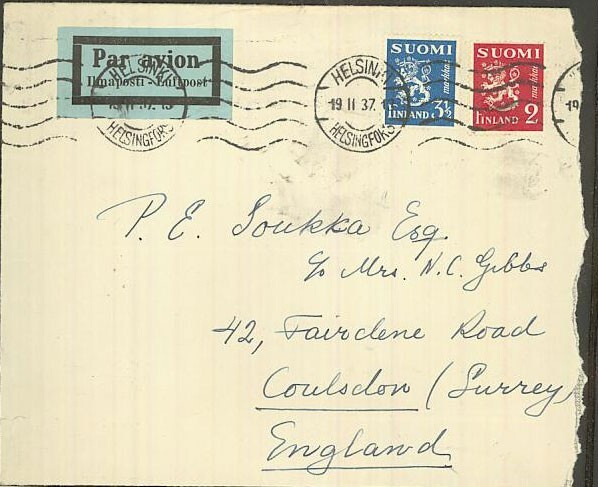 Par avion
Ilmaposti - Luftpost
HELSINKI
19 II 37. 15
HELSINGFORS
HELSINKI
19 II 37. 15
HELSINGFORS
SUOMI
markkaa
FINLAND 3½
SUOMI
markkaa
FINLAND 2
19
P. E. Soukka Esq.
c/o Mrs. N. C. Gibbs
42, Fairdene Road
Coulsdon (Surrey
England